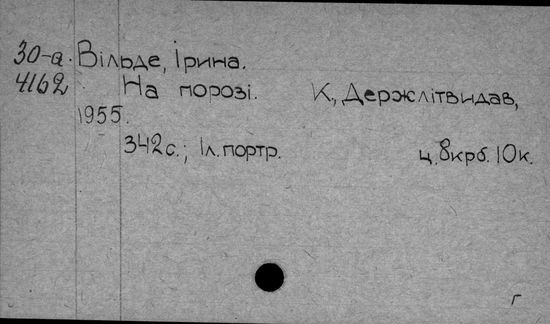 30-а. Вільде, Ірина.
4162 На порозі. К., Держлітвидав,
1955.
342с.; Іл. портр. ц. 8крб. 10к.
г